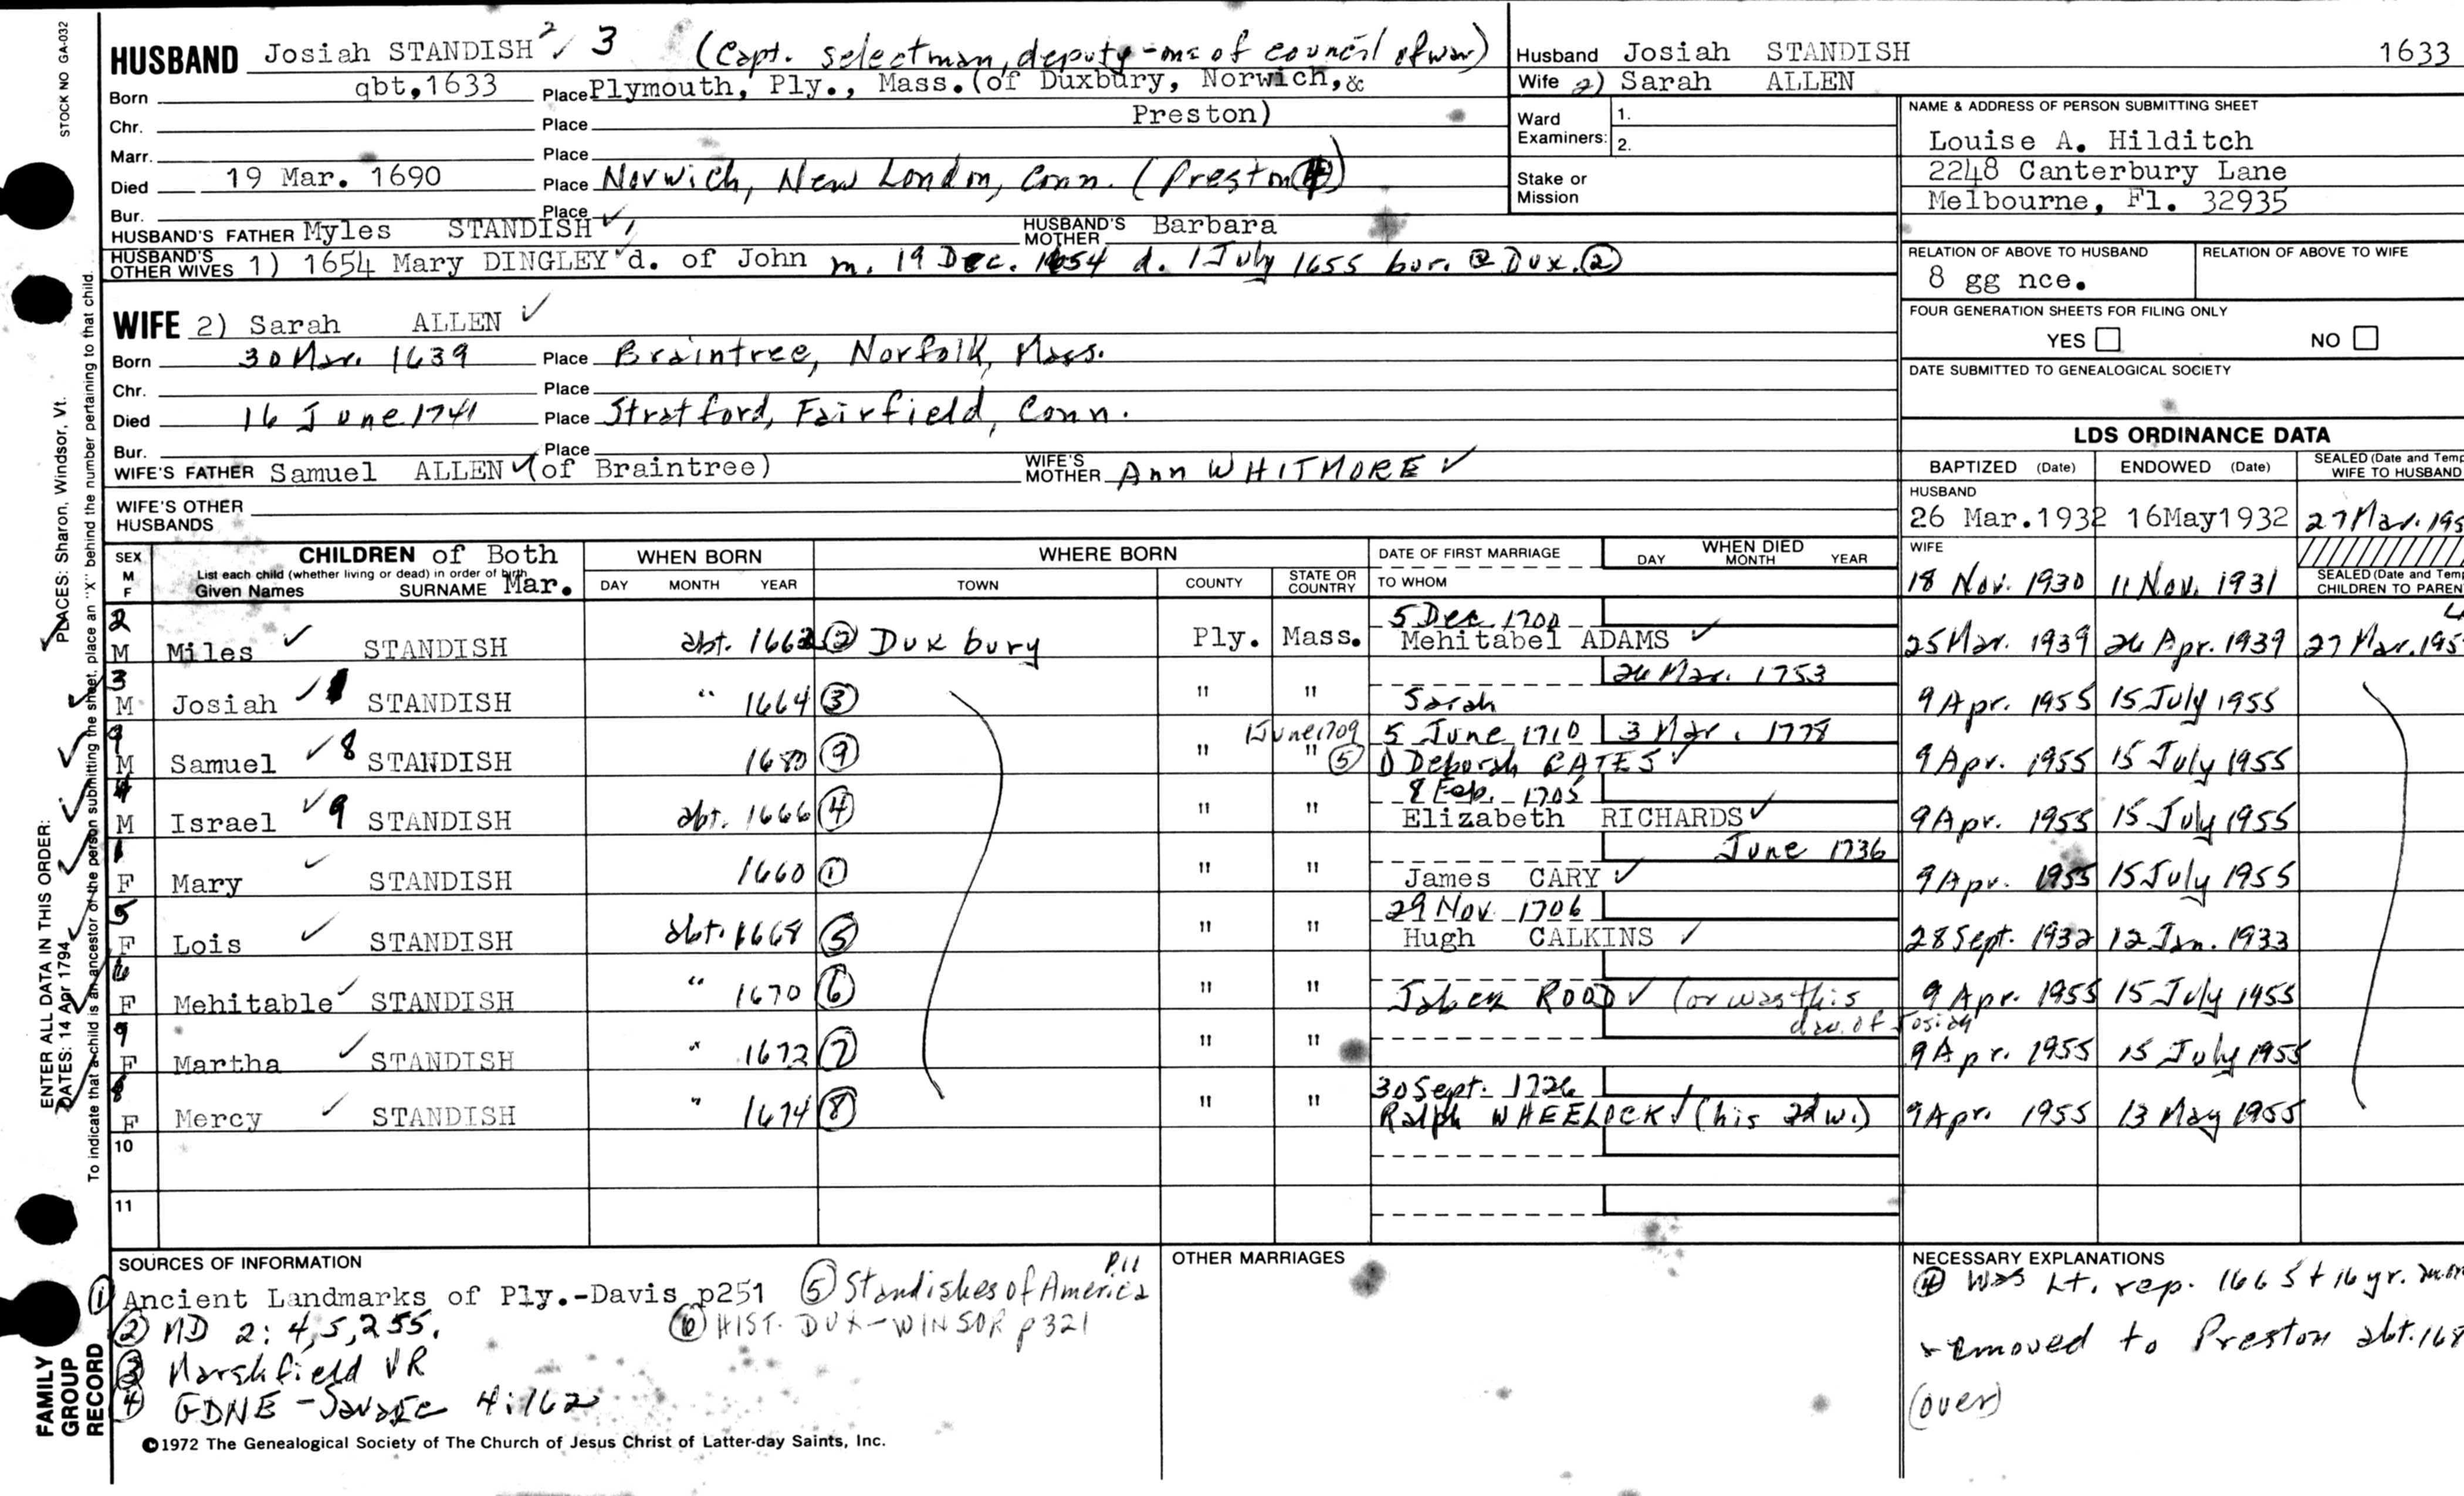 STOCK NO GA-032
PLACES: Sharon, Windsor, Vt.
ENTER ALL DATA IN THIS ORDER:
DATES: 14 Apr 1794
To indicate that a child is an ancestor of the person submitting the sheet, place an "X" behind the number pertaining to that child.
FAMILY GROUP RECORD
HUSBAND Josiah STANDISH 2/ 3 (Capt. selectman, deputy - of council of war)
Born abt. 1633 Place Plymouth, Ply., Mass. (of Duxbury, Norwich, &
Chr. Place Preston)
Marr. Place
Died 19 Mar. 1690 Place Norwich, New London, Conn. (Preston 4)
Bur. Place
HUSBAND'S FATHER Myles STANDISH HUSBAND'S MOTHER Barbara
HUSBAND'S OTHER WIVES 1) 1654 Mary DINGLEY d. of John m. 19 Dec. 1654 d. 1 July 1655 bur. @ Dux. 2
WIFE 2) Sarah ALLEN
Born 30 Mar. 1639 Place Braintree, Norfolk, Mass.
Chr. Place
Died 16 June 1741 Place Stratford, Fairfield, Conn.
Bur. Place
WIFE'S FATHER Samuel ALLEN (of Braintree) WIFE'S MOTHER Ann WHITMORE
WIFE'S OTHER HUSBANDS
Husband Josiah STANDISH 1633
Wife 2) Sarah ALLEN
Ward Examiners: 1.
2.
Stake or Mission
NAME & ADDRESS OF PERSON SUBMITTING SHEET
Louise A. Hilditch
2248 Canterbury Lane
Melbourne, Fl. 32935
RELATION OF ABOVE TO HUSBAND RELATION OF ABOVE TO WIFE
8 gg nce.
FOUR GENERATION SHEETS FOR FILING ONLY
YES NO
DATE SUBMITTED TO GENEALOGICAL SOCIETY
LDS ORDINANCE DATA
BAPTIZED (Date) ENDOWED (Date) SEALED (Date and Temp WIFE TO HUSBAND
HUSBAND
26 Mar.1932 16May1932 27 Mar. 195
WIFE
18 Nov. 1930 11 Nov. 1931 SEALED (Date and Temp CHILDREN TO PAREN
SEX M F CHILDREN of Both Mar. WHEN BORN WHERE BORN DATE OF FIRST MARRIAGE WHEN DIED
List each child (whether living or dead) in order of birth
Given Names SURNAME DAY MONTH YEAR TOWN COUNTY STATE OR COUNTRY TO WHOM DAY MONTH YEAR
2 5 Dec. 1700
M Miles STANDISH abt. 1662 2 Duxbury Ply. Mass. Mehitabel ADAMS 25 Mar. 1939 26 Apr. 1939 27 Mar. 195
3 26 Mar. 1753
M Josiah STANDISH " 1664 3 " " Sarah 9 Apr. 1955 15 July 1955
9 1 June 1709 5 June 1710 3 Mar. 1778
M Samuel 8 STANDISH 1680 9 " " 5 Deborah GATES 9 Apr. 1955 15 July 1955
4 8 Feb. 1705
M Israel 9 STANDISH abt. 1666 4 " " Elizabeth RICHARDS 9 Apr. 1955 15 July 1955
1 June 1736
F Mary STANDISH 1660 1 " " James CARY 9 Apr. 1955 15 July 1955
5 29 Nov. 1706
F Lois STANDISH abt. 1668 5 " " Hugh CALKINS 28 Sept. 1932 12 Jan. 1933
6
F Mehitable STANDISH " 1670 6 " " Jabez ROOD (or was this dau. of Josiah 9 Apr. 1955 15 July 1955
F Martha STANDISH " 1672 7 " " 9 Apr. 1955 15 July 1955
8 30 Sept. 1726
F Mercy STANDISH " 1674 8 " " Ralph WHEELOCK (his 2d w.) 9 Apr. 1955 13 May 1955
10
11
SOURCES OF INFORMATION
1 Ancient Landmarks of Ply.-Davis p251 5 Standishes of America p11
2 MD 2: 4,5,255. 6 HIST. DUX - WINSOR p 321
3 Marshfield VR
4 GDNE - Savage 4:162
OTHER MARRIAGES
NECESSARY EXPLANATIONS
4 Was Lt. rep. 1665 + 16 yr. more
removed to Preston abt. 168
(over)
©1972 The Genealogical Society of The Church of Jesus Christ of Latter-day Saints, Inc.